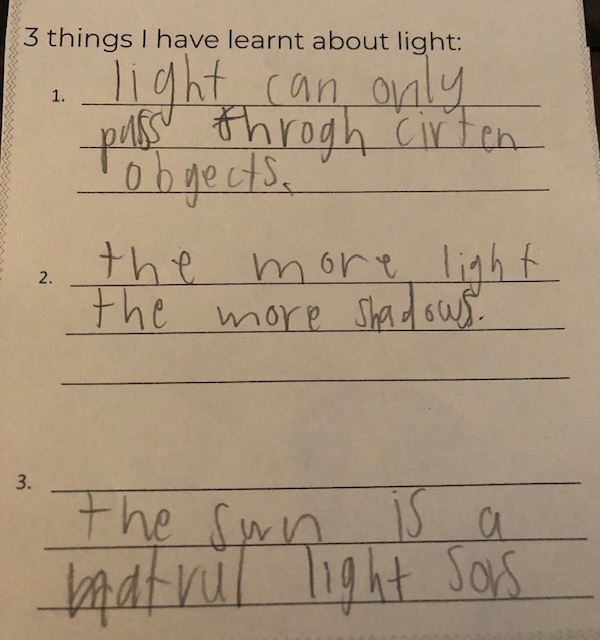 3 things I have learnt about light:
1. light can only
pass throgh cirten
obgects.
2. the more light
the more shadows.
3.
the sun is a
natrul light sors